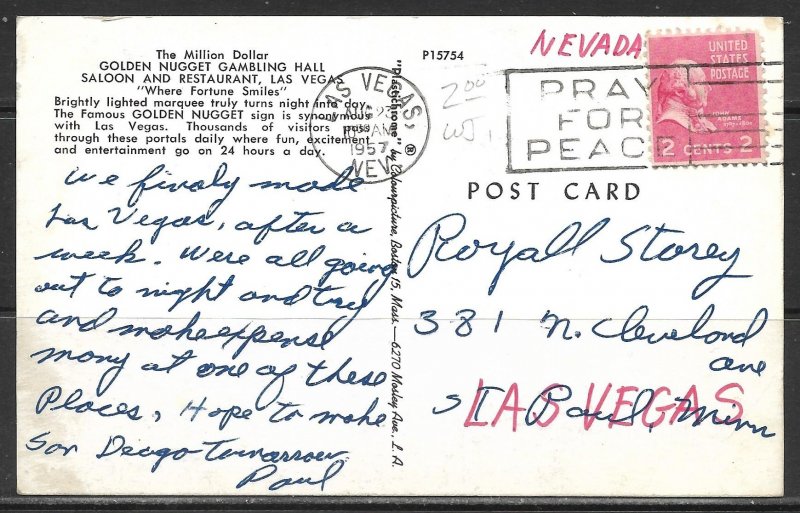 The Million Dollar
GOLDEN NUGGET GAMBLING HALL
SALOON AND RESTAURANT, LAS VEGAS
"Where Fortune Smiles"
Brightly lighted marquee truly turns night into day.
The Famous GOLDEN NUGGET sign is synonymous
with Las Vegas. Thousands of visitors pass
through these portals daily where fun, excitement
and entertainment go on 24 hours a day.
we finaly made
Las Vegas, after a
week. Were all going
out to night and try
and make expense
mony at one of these
Places, Hope to make
San Deago Tomarrow
Paul
"Plastichrome" ® by Colourpicture, Boston 15, Mass.—6270 Mosley Ave., L. A.
P15754
LAS VEGAS,
AM
1957
NEV.
2 00
NEVADA
PRAY
FOR
PEACE
UNITED
STATES
POSTAGE
JOHN
ADAMS
2 CENTS 2
POST CARD
Royall Storey
381 N. Cleveland
ave
St Paul, Minn
LAS VEGAS